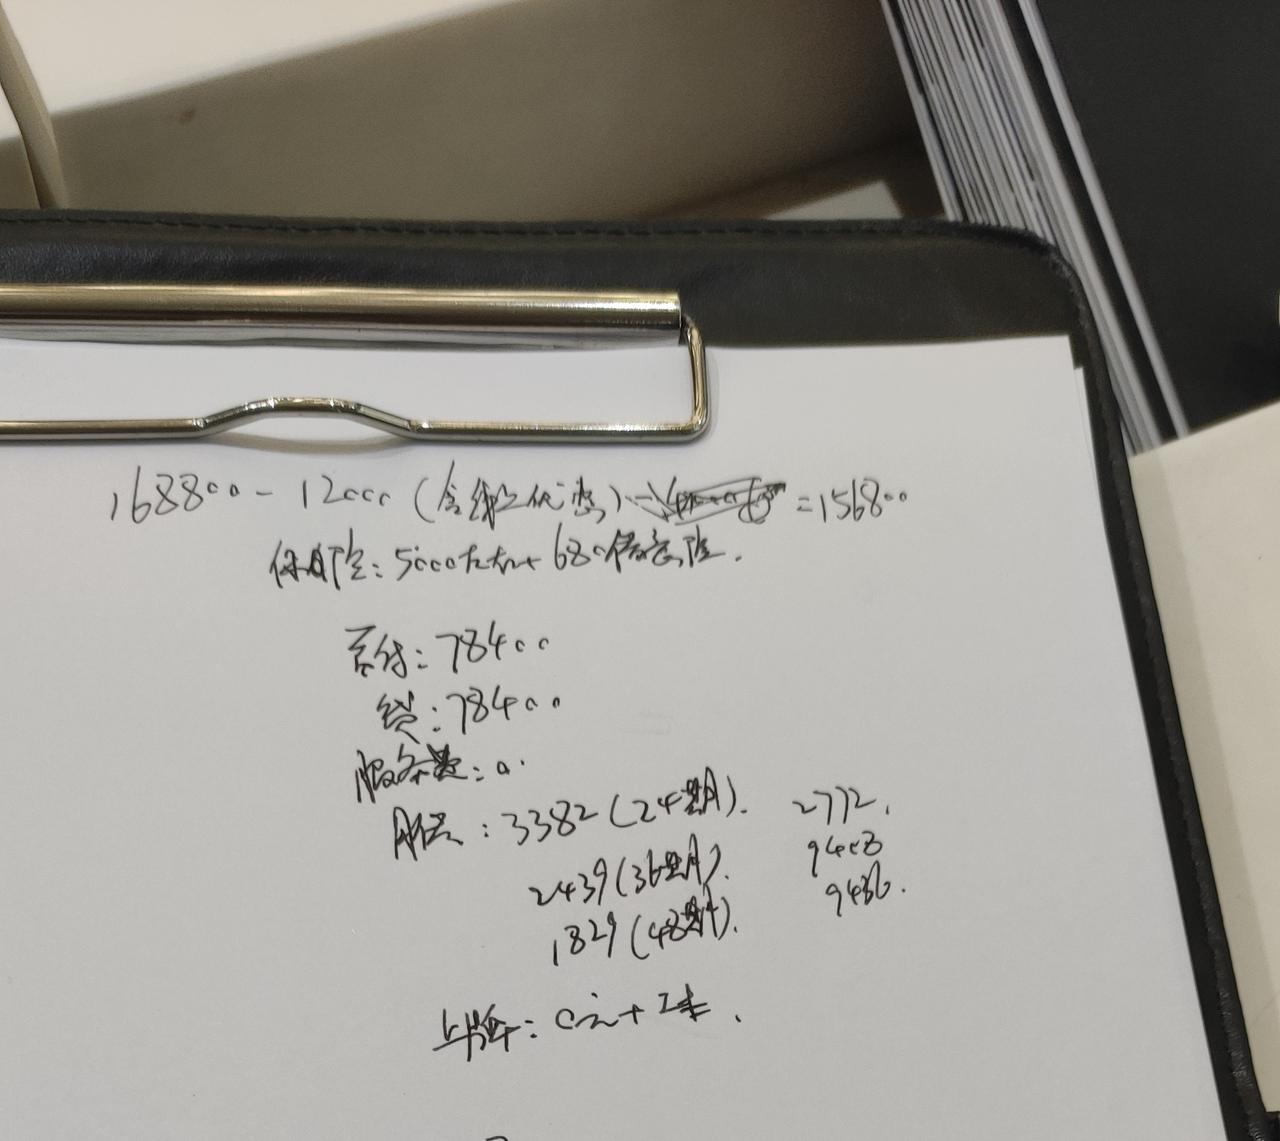 168800 - 12000 (含线上优惠) = 156800
保险: 5000左右+ 680驾意险.
首付: 78400
贷: 78400
服务费: 0.
月供: 3382 (24期). 2772.
2439 (36期). 9403
1829 (48期). 9436.
上牌: 0元+工本.